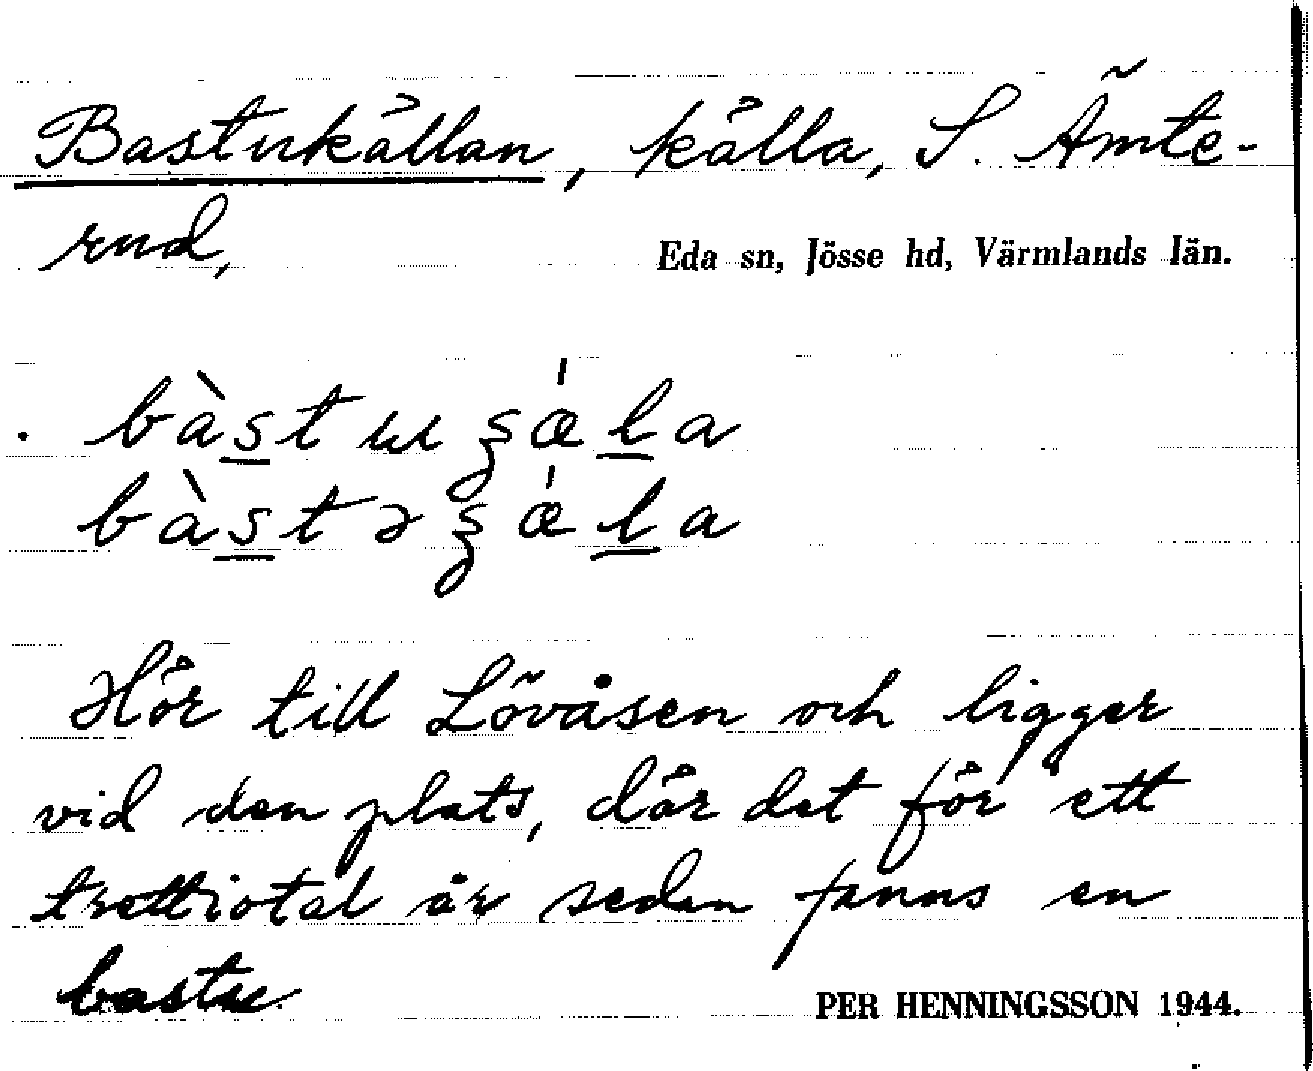 Bastukällan, källa, S. Ämte-
rud,
Eda sn, Jösse hd, Värmlands län.
bàstɯʂǽla
bàstəʂǽla
Hör till Lövåsen och ligger
vid den plats, där det för ett
trettiotal år sedan fanns en
bastu.
PER HENNINGSSON 1944.